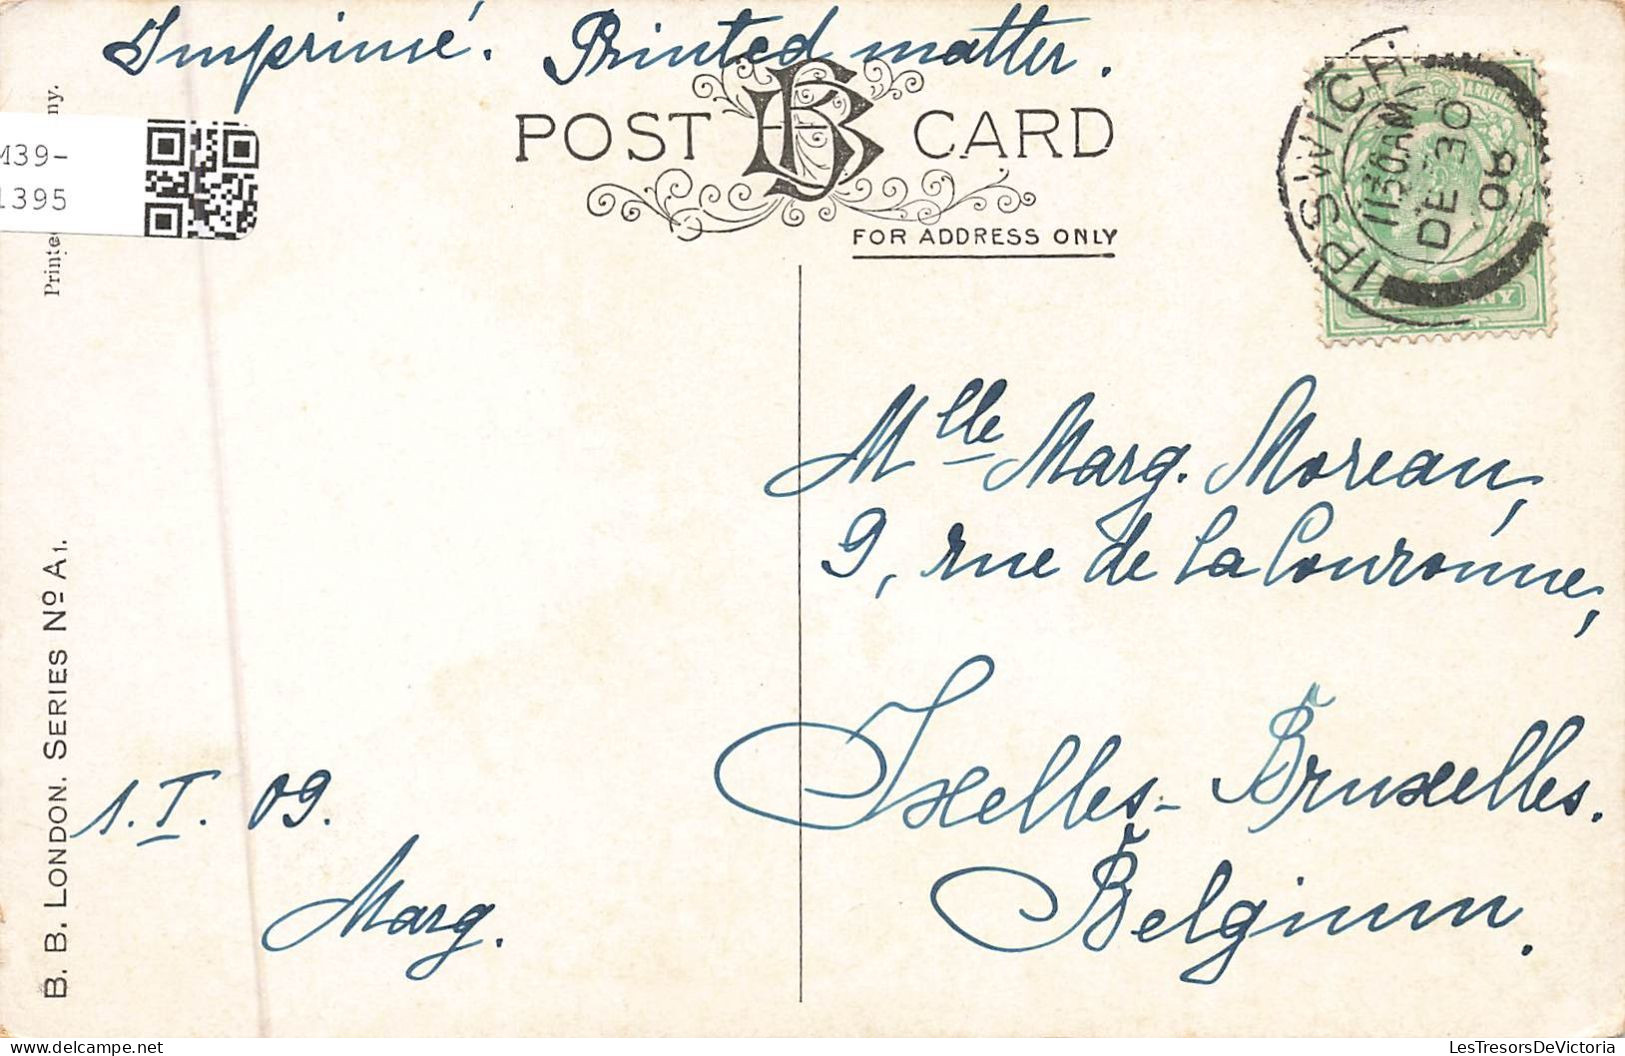 Imprimé. Printed matter.
POST CARD
FOR ADDRESS ONLY
IPSWICH
11.30AM
DE 30
08
M39-
1395
Printed
ny.
B. B. LONDON. SERIES Nº A1.
Mlle Marg. Moreau,
9, rue de la Couronne,
Ixelles-Bruxelles.
Belgium.
1.I.09.
Marg.
LesTresorsDeVictoria